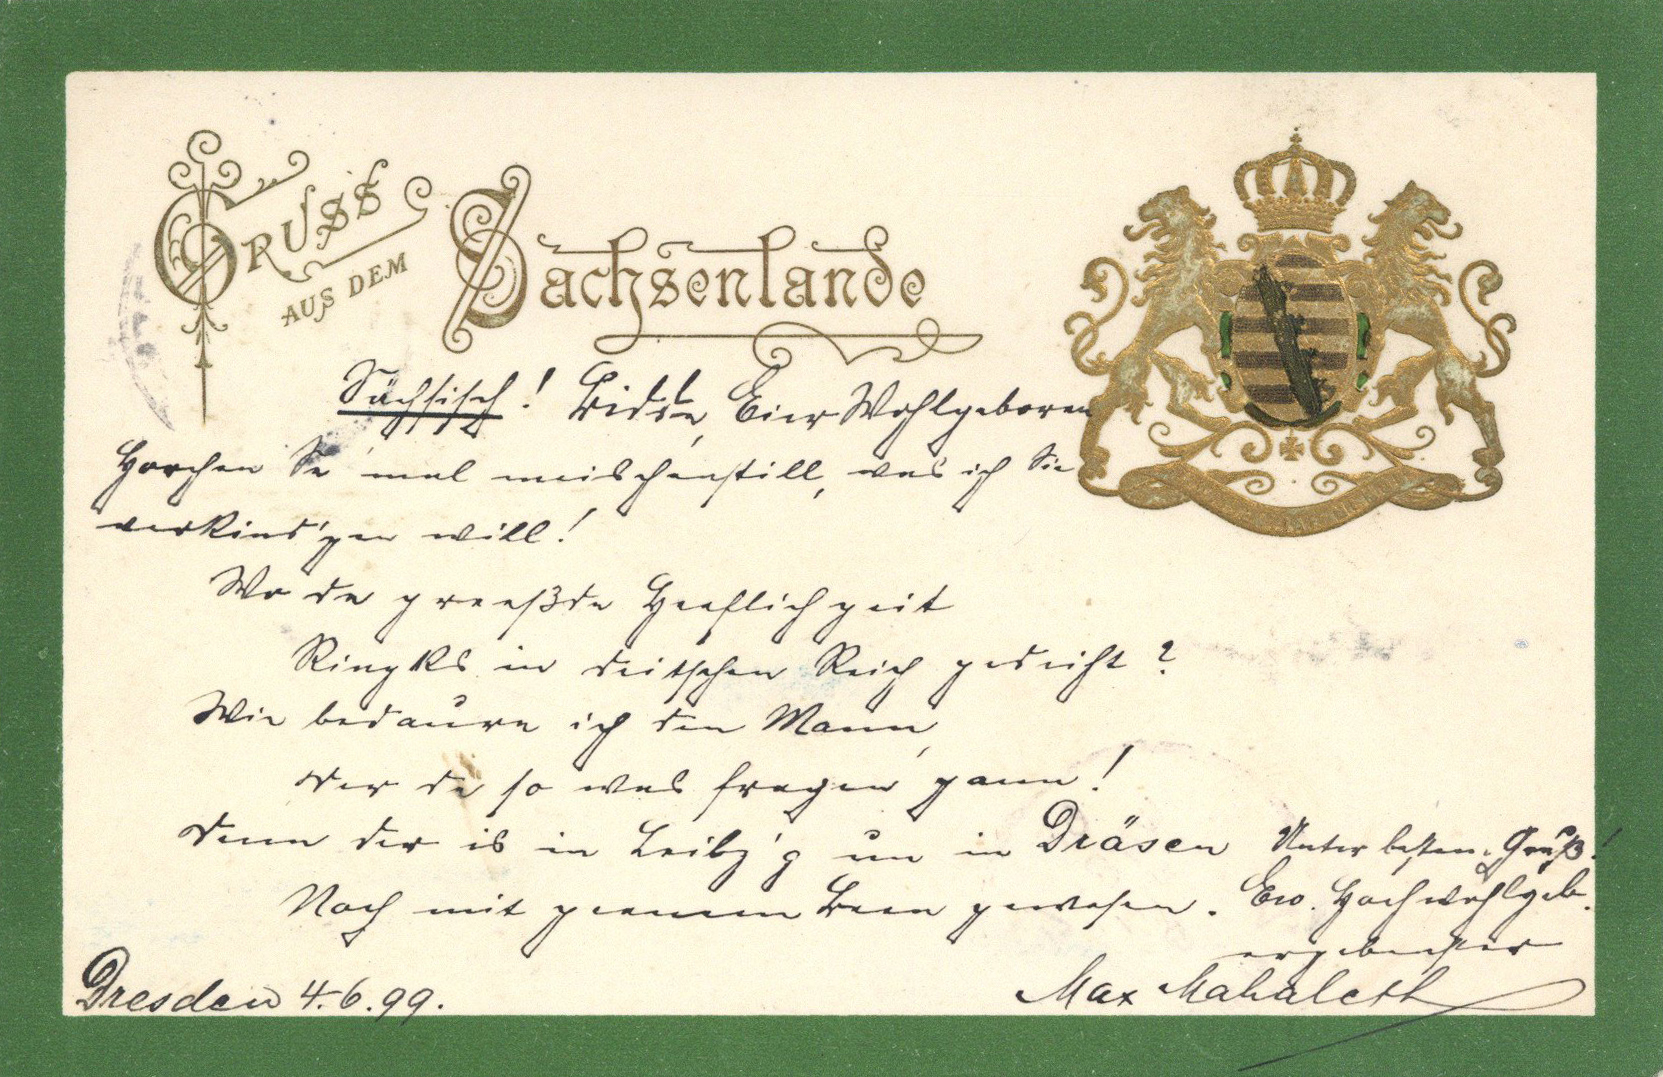 GRUSS
AUS DEM
Sachsenlande
Sächsisch! Bidde, Eier Wohlgeboren
Horchen Se mal meischenstill, was ich Sie
verkind'gen will!
Wo de greeßde Heeflichgeit
Ringks in deitschen Reich gedeiht?
Wie bedaure ich den Mann,
Der de so was fragen gann!
Denn der is in Leibz'g un in Dräsen
Noch mit geenem Been gewesen.
Unter besten Gruß!
Ew. Hochwohlgeb.
ergebenster
Max Mahaleth
Dresden 4.6.99.